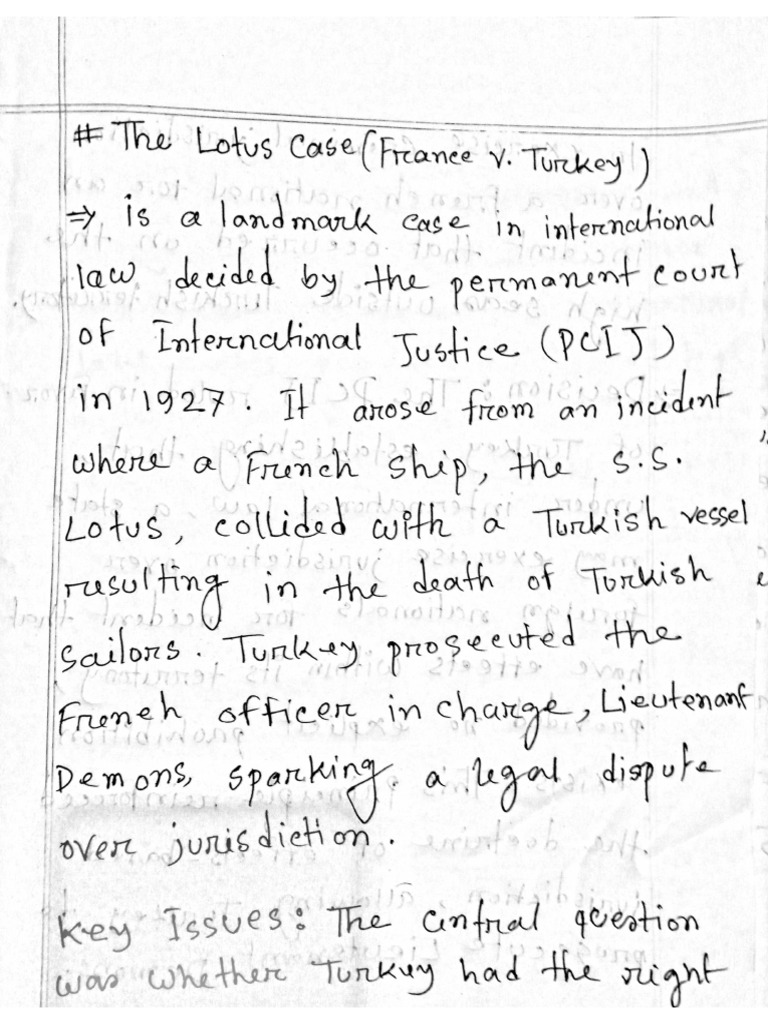 # The Lotus Case (France v. Turkey)
⇒ is a landmark case in international
law decided by the permanent court
of International Justice (PCIJ)
in 1927. It arose from an incident
where a French ship, the S.S.
Lotus, collided with a Turkish vessel
resulting in the death of Turkish
sailors. Turkey prosecuted the
French officer in charge, Lieutenant
Demons, sparking a legal dispute
over jurisdiction.
Key Issues: The central question
was whether Turkey had the right